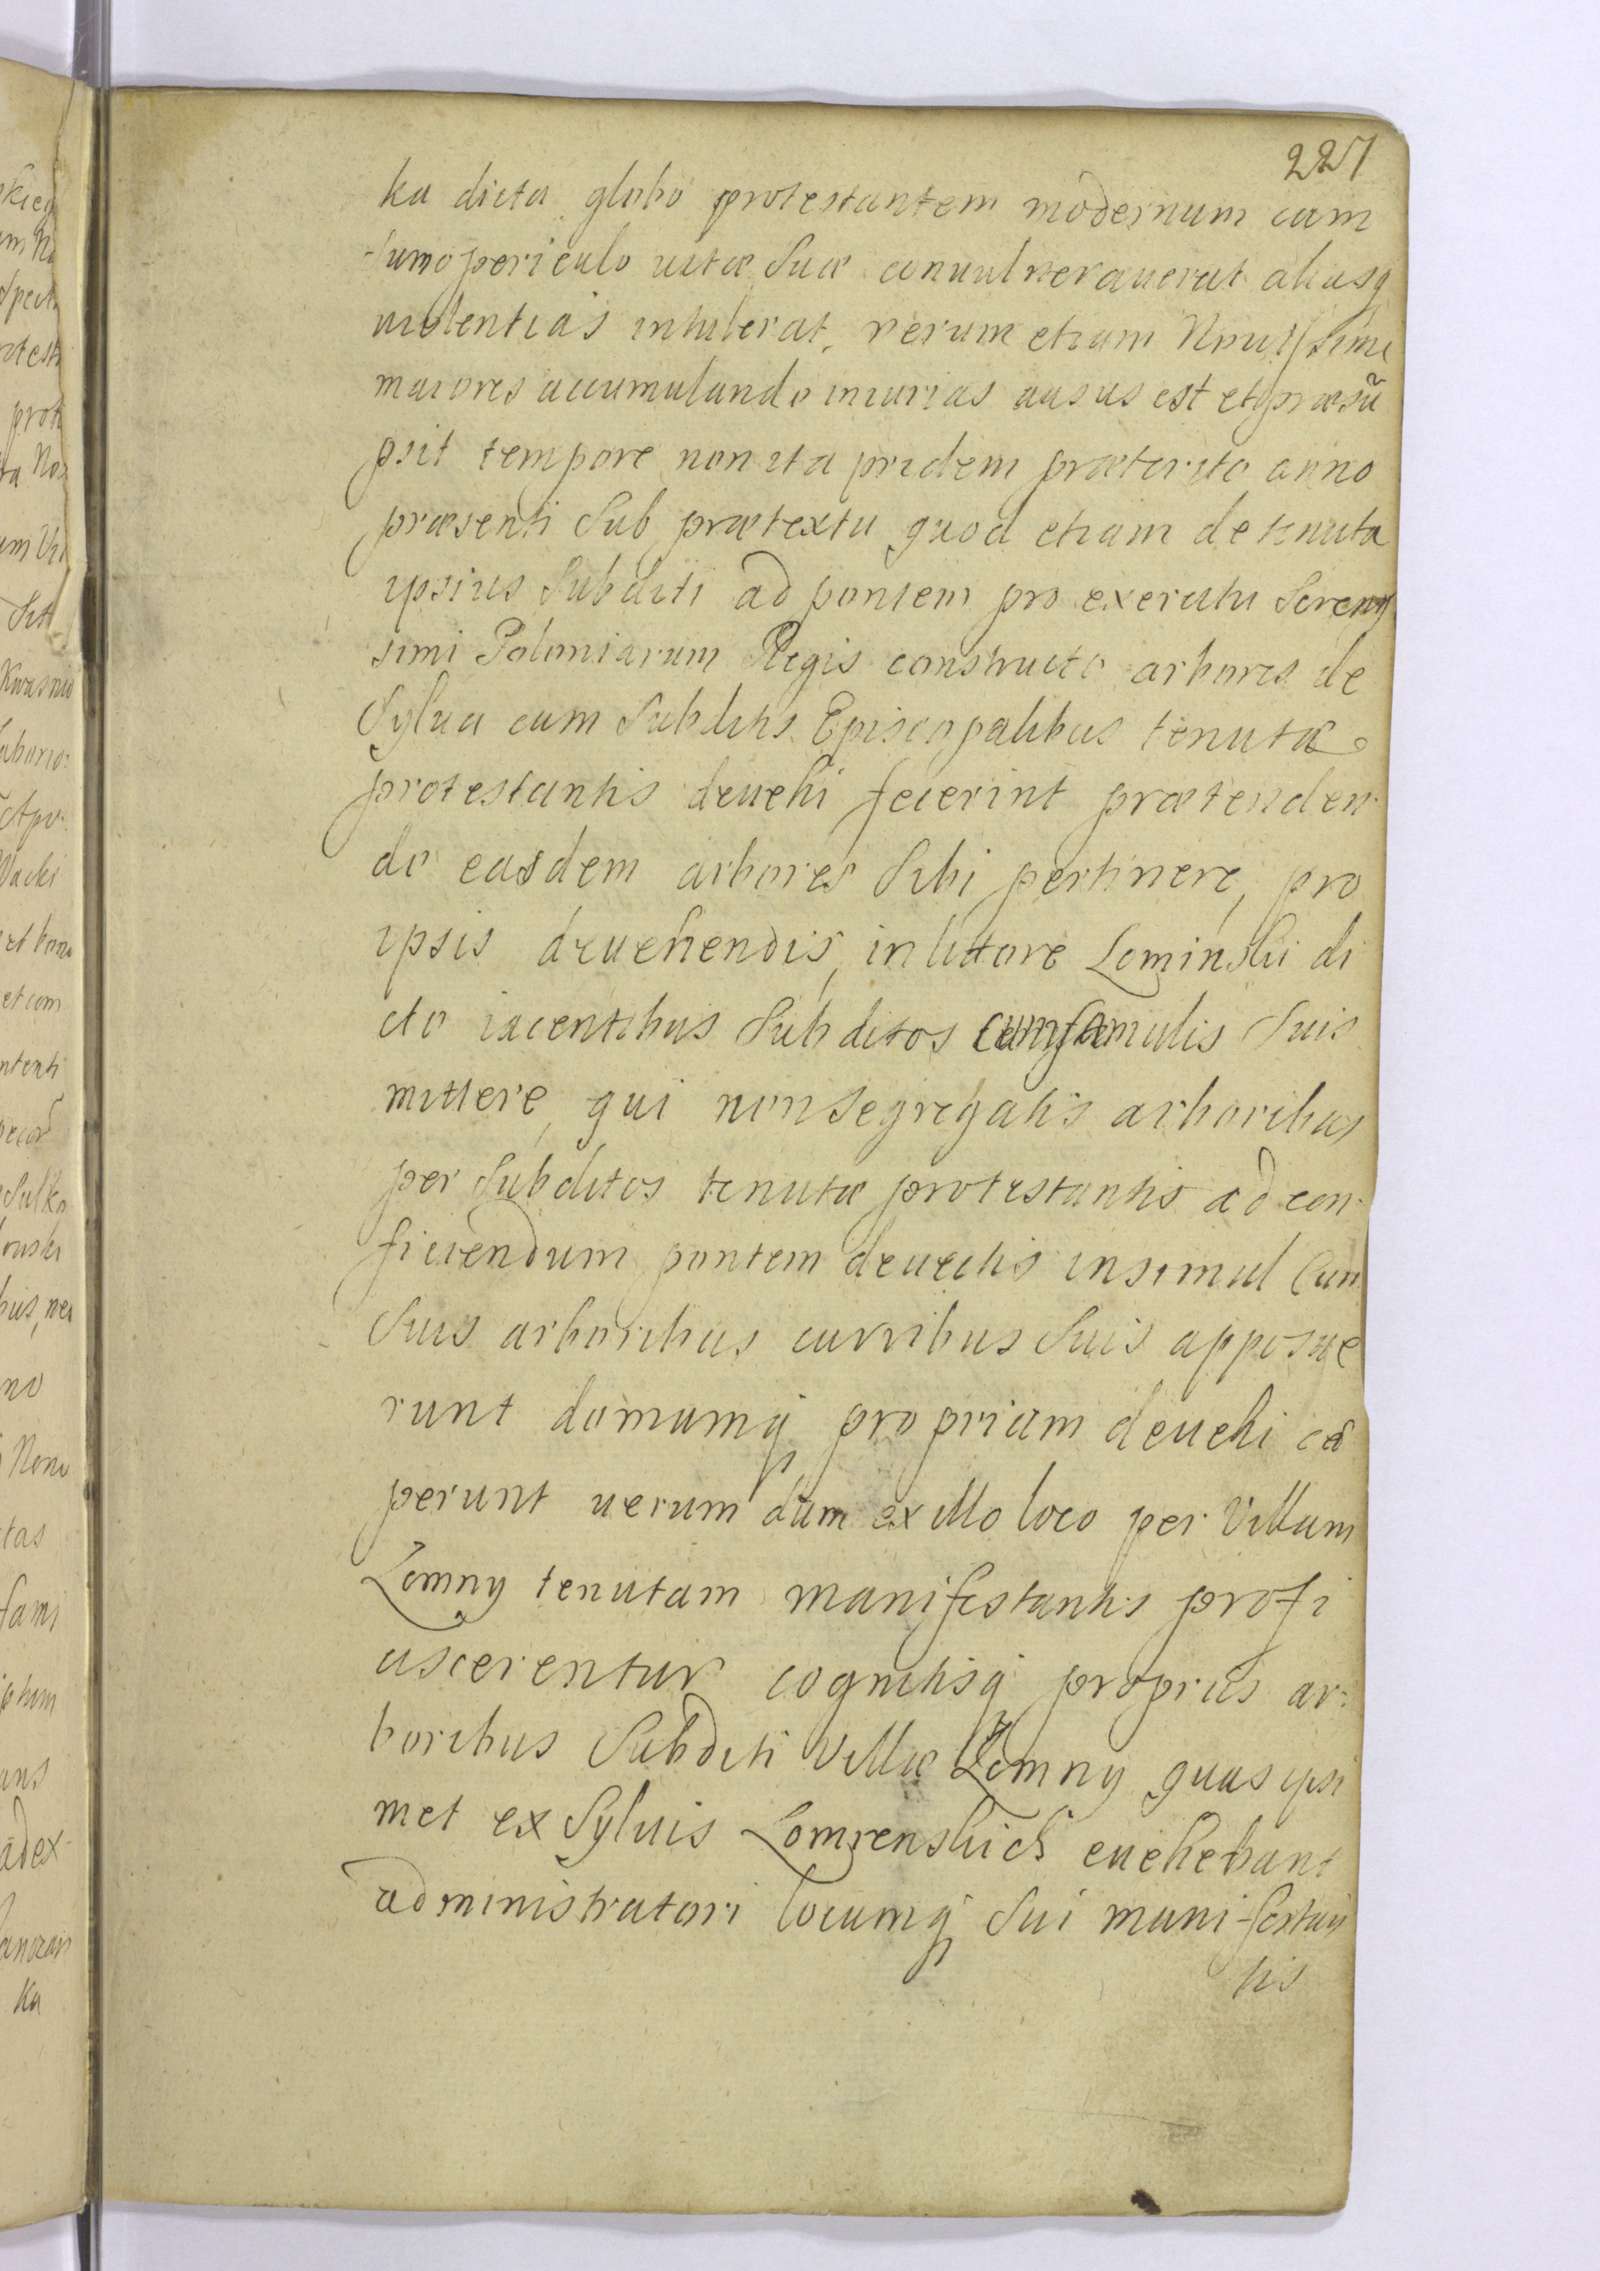 227
ka dicta globo protestantem modernum cum
sumo periculo uitæ Suæ conuulnerauerat aliasq
uiolentias intulerat, verum etiam Nouissime
maiores accumulando iniurias ausus est et præsũ
psit tempore non ita pridem præterito anno
præsenti Sub prætextu quod etiam de tenuta
ipsius Subditi ad pontem pro exercitu Serenis
simi Poloniarum Regis constructo arbores de
Sylua cum Subditis Episcopalibus tenutæ
protestantis deuehi fecerint prætenden
do easdem arbores Sibi pertinere, pro
ipsis deuehendis, in littore Lominskii di
cto iacentibus Subditos cum famulis Suis
mittere, qui non Segregatis arboribus
per Subditos tenutæ protestantis ad con
ficiendum pontem deuectis insimul Cum
Suis arboribus curribus Suis apposue
runt domumq propriam deuehi cæ
perunt uerum dum ex illo loco per Villam
Lomny tenutam manifestantis profi
uscerentur cognitisq propriis ar:
boribus Subditi Villæ Lomny quas ipsi
met ex Syluis Lomzenskich euehebant
administratori locumq Sui manifestan
tis